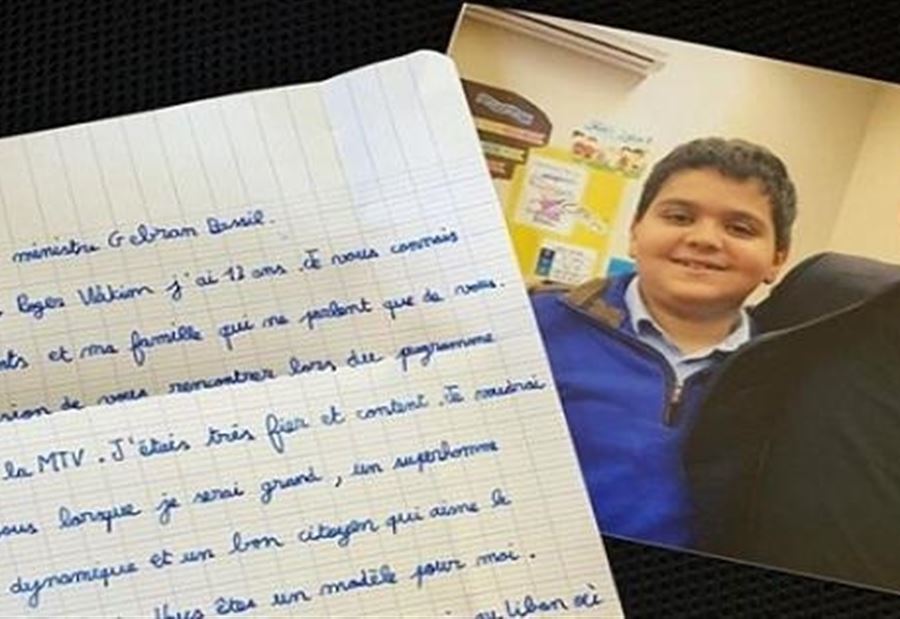 ministre Gebran Bassil.
Roger Hakim j'ai 12 ans. Je vous connais
nts et ma famille qui ne parlent que de vous.
sion de vous rencontrer lors du programme
la MTV. J'étais très fier et content. Je voudrai
ous lorsque je serai grand, un superhomme
dynamique et un bon citoyen qui aime le
Vous êtes un modèle pour moi.
au liban où